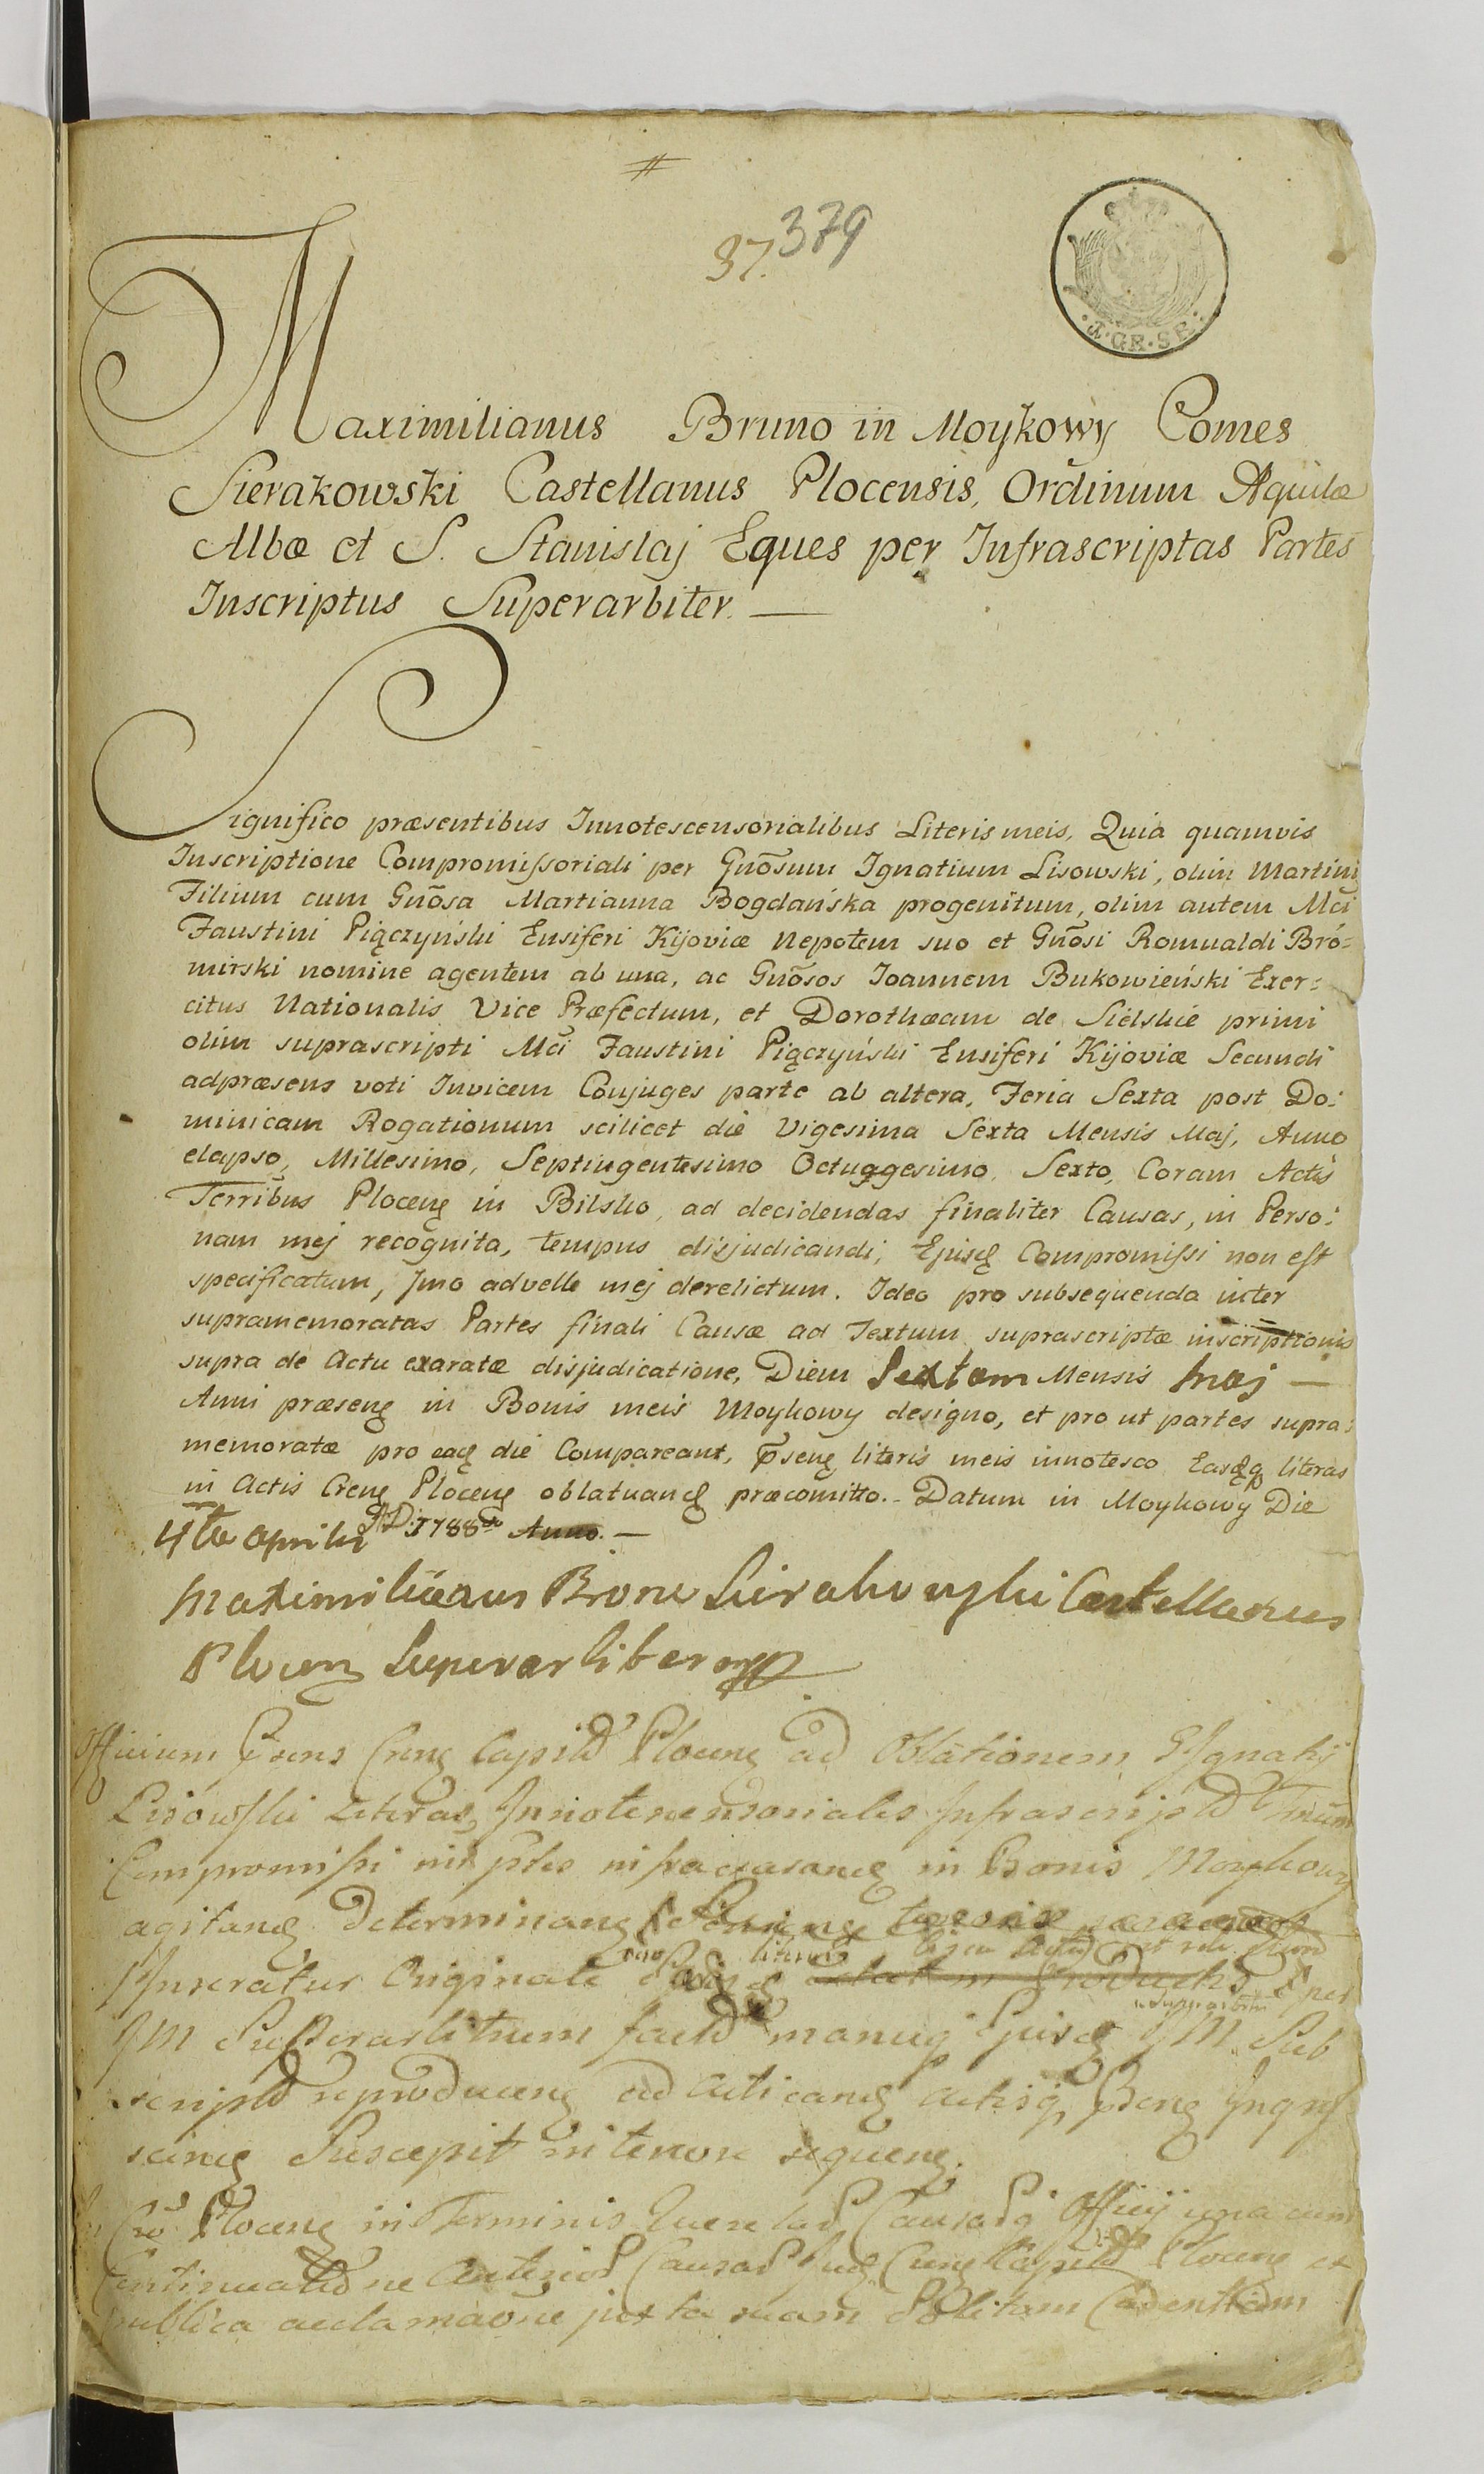 #
37. 379
·I·GR·SR·
Maximilianus Bruno in Moykowy Comes
Sierakowski Castellanus Plocensis, Ordinum Aquilæ
Albæ et S. Stanislaj Eques per Infrascriptas Partes
Inscriptus Superarbiter. —
Significo præsentibus Innotescensorialibus Literis meis, Quia quamvis
Inscriptione Compromissoriali per Gnõsum Ignatium Lisowski, olim Martini
Filium cum Gnõsa Martianna Bogdańska progenitum, olim autem Mci
Faustini Piączyński Ensiferi Kijoviæ Nepotem suo et Gnõsi Romualdi Bró=
mirski nomine agentem ab una, ac Gnõsos Joannem Bukowieński Exer=
citus Nationalis Vice Præfectum, et Dorothæam de Sielskie primi
olim suprascripti Mci Faustini Piączyński Ensiferi Kijoviæ Secundi
adpræsens voti Invicem Conjuges parte ab altera, Feria Sexta post Do:
minicam Rogationum scilicet die Vigesima Sexta Mensis Maj, Anno
elapso, Millesimo, Septingentesimo Octuggesimo Sexto, Coram Actis
Terribus Plocen in Bilsko, ad decidendas finaliter Causas, in Perso:
nam mej recognita, tempus disjudicandi, Ejusd Compromissi non est
specificatum, Jmo advelle mej derelictum. Ideo pro subsequenda inter
supramemoratas Partes finali Causæ ad Textum suprascriptæ inscriptionis
supra de Actu exaratæ disjudicatione, Diem Sextam Mensis Maj —
Anni præsen in Bonis meis Moykowy designo, et pro ut partes supra:
memoratæ pro ead die Compareant, p̃sen literis meis innotesco Easdq literas
in Actis Cren Plocen oblatuand præcomitto. Datum in Moykowy Die
4ta Aprilis AD: 1788vo Anno. —
Maximilianus Bruno Sierakowski Castellanus
Plocen Superarbiter mp
Officium Præns Cren Capitl Plocen ad Oblationem G Ignatij
Lisowski Literas Innotescensoriales Infrascript Tmum
Compromissi int ptes infra in Bonis Moykowy
agitand determinan
Inseratur Originale per
JM Superarbitrum fact manuq Ejusd JM Sub
script reproducen ad acticand actisq Præn Ingros
sand Suscepit in tenore sequen.
Plocen in Terminis Querelar Causarq Officij una cum
Continuatione Anterior Causar Jud Cren Capitl Plocen et
publica acclamaone juxta suam Solitam Cadentiam